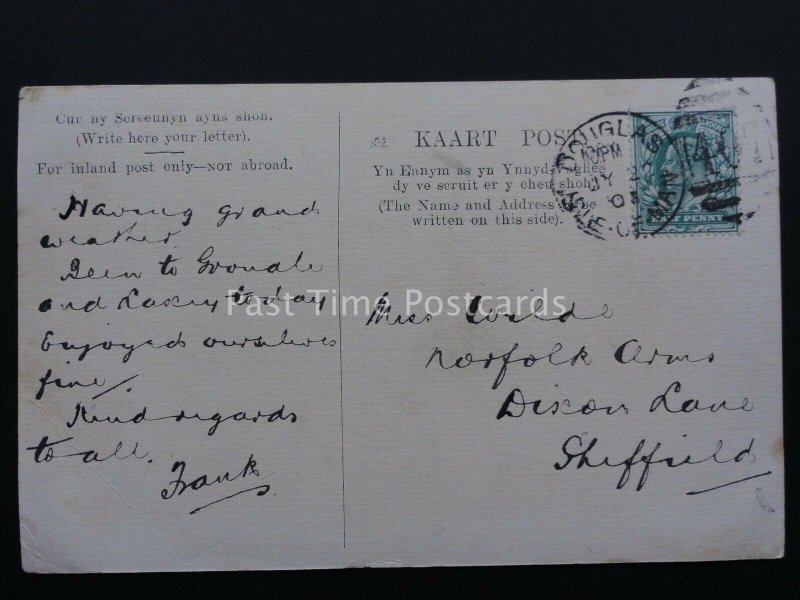 Cur ny Screeunyn ayns shoh.
(Write here your letter).
For inland post only—NOT abroad.
Having grand
weather.
Been to Groudle
and Laxey to day
Enjoyed ourselves
fine.
Kind regards
to all.
Frank
KAART POST
Yn Ennym as yn Ynnyd
dy ve scruit er y cheu shoh
(The Name and Address be
written on this side).
DOUGLAS
PM
JY 2
ISLE-OF-MAN
PENNY
Miss Wilde
Norfolk Arms
Dixon Lane
Sheffield
Past Time Postcards